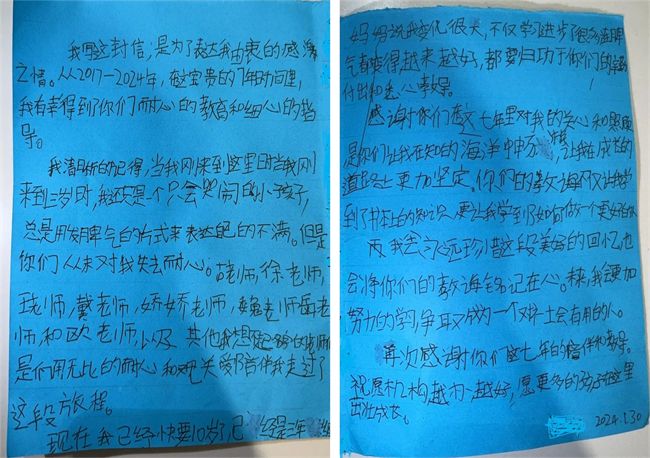 我写这封信，是为了表达我由衷的感激
之情。从2017—2024年，在这宝贵的7年时间里，
我有幸得到了你们耐心的教育和细心的指
导。
我清晰的记得，当我刚来到这里时当我刚
来到三岁时，我还只是一个只会哭闹的小孩子，
总是用发脾气的方式来表达自己的不满。但是
你们从未对我失去耐心。老师，徐老师，
老师，戴老师，娇娇老师，魏老师岳老
师和欧老师，以及其他我想起名的老师
是们用无比的耐心和关爱陪伴我走过了
这段旅程。
现在我已经快要10岁了，已经是
妈妈说我变化很大，不仅学习进步了很多连脾
气都变得越来越好，都要归功于你们的
付出和悉心教导。
感谢你们在这七年里对我的关心和照顾
是你们让我在知的海洋中，让我在成长的
道路上更加坚定。你们的教诲不仅让我学
到了书本上的知识，更让我学到了如何做一个更好的
我会永远珍惜这段美好的回忆也
会将你们的教诲铭记在心。未来，我会更加
努力的学，争取成为一个对社会有用的人。
再次感谢你们这七年的陪伴和教导。
祝愿机构越办越好，愿更多的孩子在这里
茁壮成长。
2024.1.30